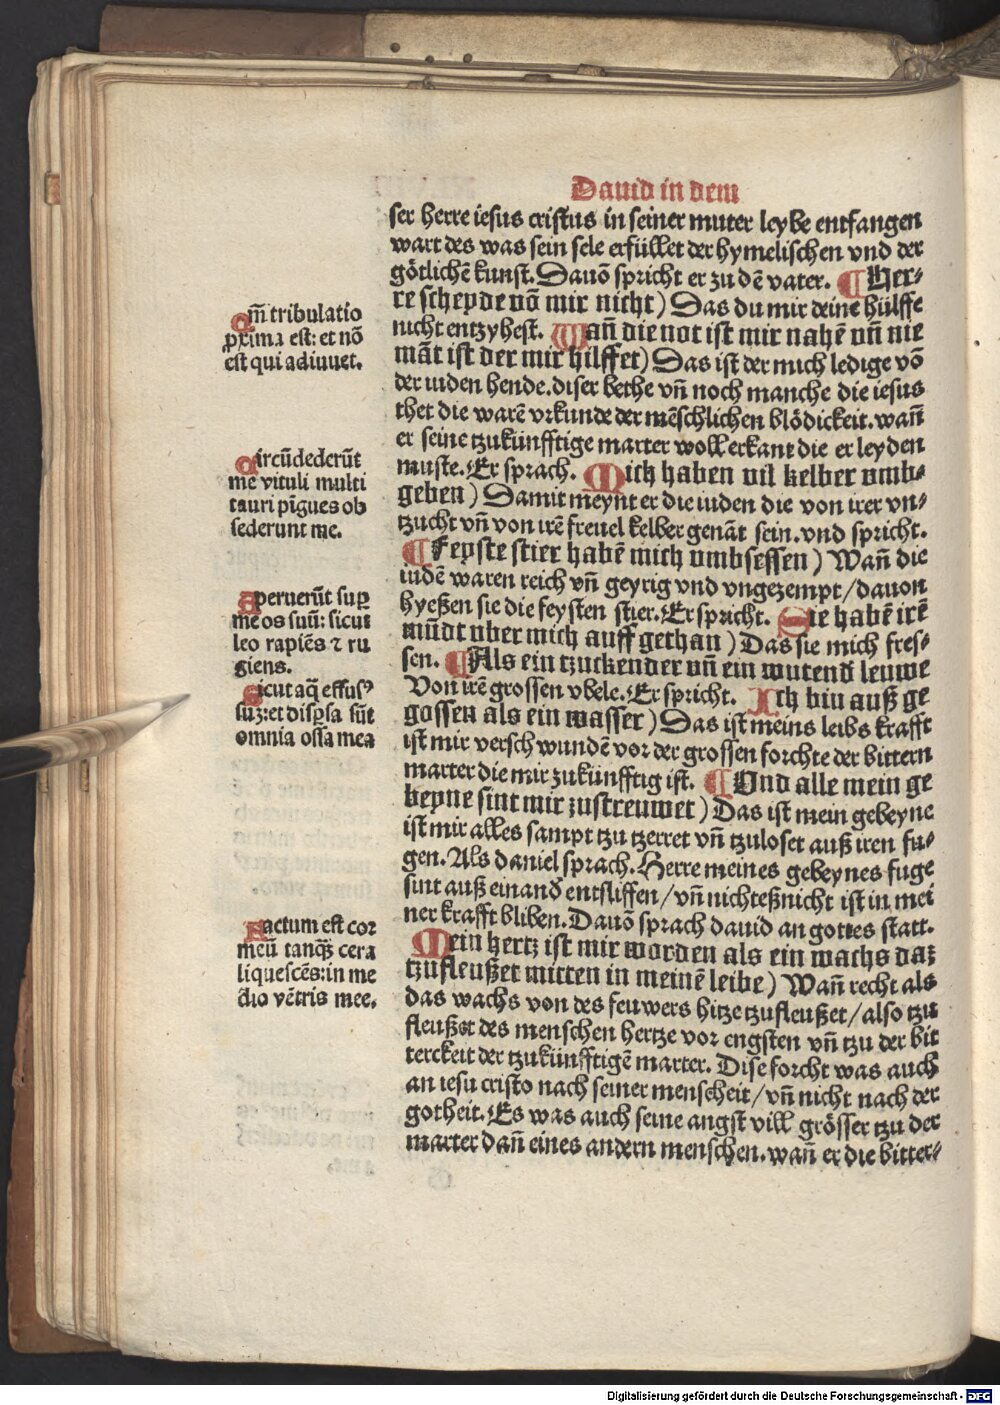 Dauid in dem
ser herre iesus cristus in seiner muter leybe entfangen
wart des was sein sele erfüllet der hymelischen vnd der
götlichē kunst. Dauō spricht er zu dē vater. ¶ Her⸗
re scheyde vō mir nicht) Das du mir deine hülffe
nicht entzyhest. Wañ die not ist mir nahē vñ nie
māt ist der mir hilffet) Das ist der mich ledige vō
der iuden hende. diser bethe vñ noch manche die iesus
thet die warē vrkunde der mēschlichen blödickeit. wañ
er seine tzukünfftige marter woll erkant die er leyden
muste. Er sprach. Mich haben vil kelber vmb⸗
geben) Damit meynt er die iuden die von irer vn⸗
tzucht vñ von irē freuel kelber genāt sein. vnd spricht.
¶ Feyste stier habē mich vmbsessen) Wañ die
iudē waren reich vñ geyrig vnd vngezempt/dauon
hyeßen sie die feysten stier. Er spricht. Sie habē irē
mūdt vber mich auff gethan) Das sie mich fres⸗
sen. ¶ Als ein tzuckender vñ ein wutend leuwe
Von irē grossen vbele. Er spricht. Ich bin auß ge
gossen als ein wasser) Das ist meins leibs krafft
ist mir verschwundē vor der grossen forchte der bittern
marter die mir zukünfftig ist. ¶ Vnd alle mein ge
beyne sint mir zustreuwet) Das ist mein gebeyne
ist mir alles sampt tzu tzerret vñ tzuloset auß iren fu⸗
gen. Als daniel sprach. Herre meines gebeynes fuge
sint auß einand entsliffen/vñ nichteßnicht ist in mei
ner krafft bliben. Dauō sprach dauid an gottes statt.
Mein hertz ist mir worden als ein wachs daz
tzufleußet mitten in meinē leibe) Wañ recht als
das wachs von des feuwers hitze tzufleußet/also tzu
fleußet des menschen hertze vor engsten vñ tzu der bit
terckeit der tzukünfftigē marter. Dise forcht was auch
an iesu cristo nach seiner menscheit/vñ nicht nach der
gotheit. Es was auch seine angst vill grösser tzu der
marter dañ eines andern menschen. wañ er die bitter⸗
Qm̄ tribulatio
ꝓxima est: et nō
est qui adiuuet.
Circūdederūt
me vituli multi
tauri pīgues ob
sederunt me.
Aperuerūt suꝑ
me os suū: sicut
leo rapiēs ⁊ ru
giens.
Sicut aq̄ effusꝰ
suꝫ: et disꝑsa sūt
omnia ossa mea
Factum est cor
meū tanqꝫ cera
liquescēs: in me
dio vētris mee.
Digitalisierung gefördert durch die Deutsche Forschungsgemeinschaft - DFG